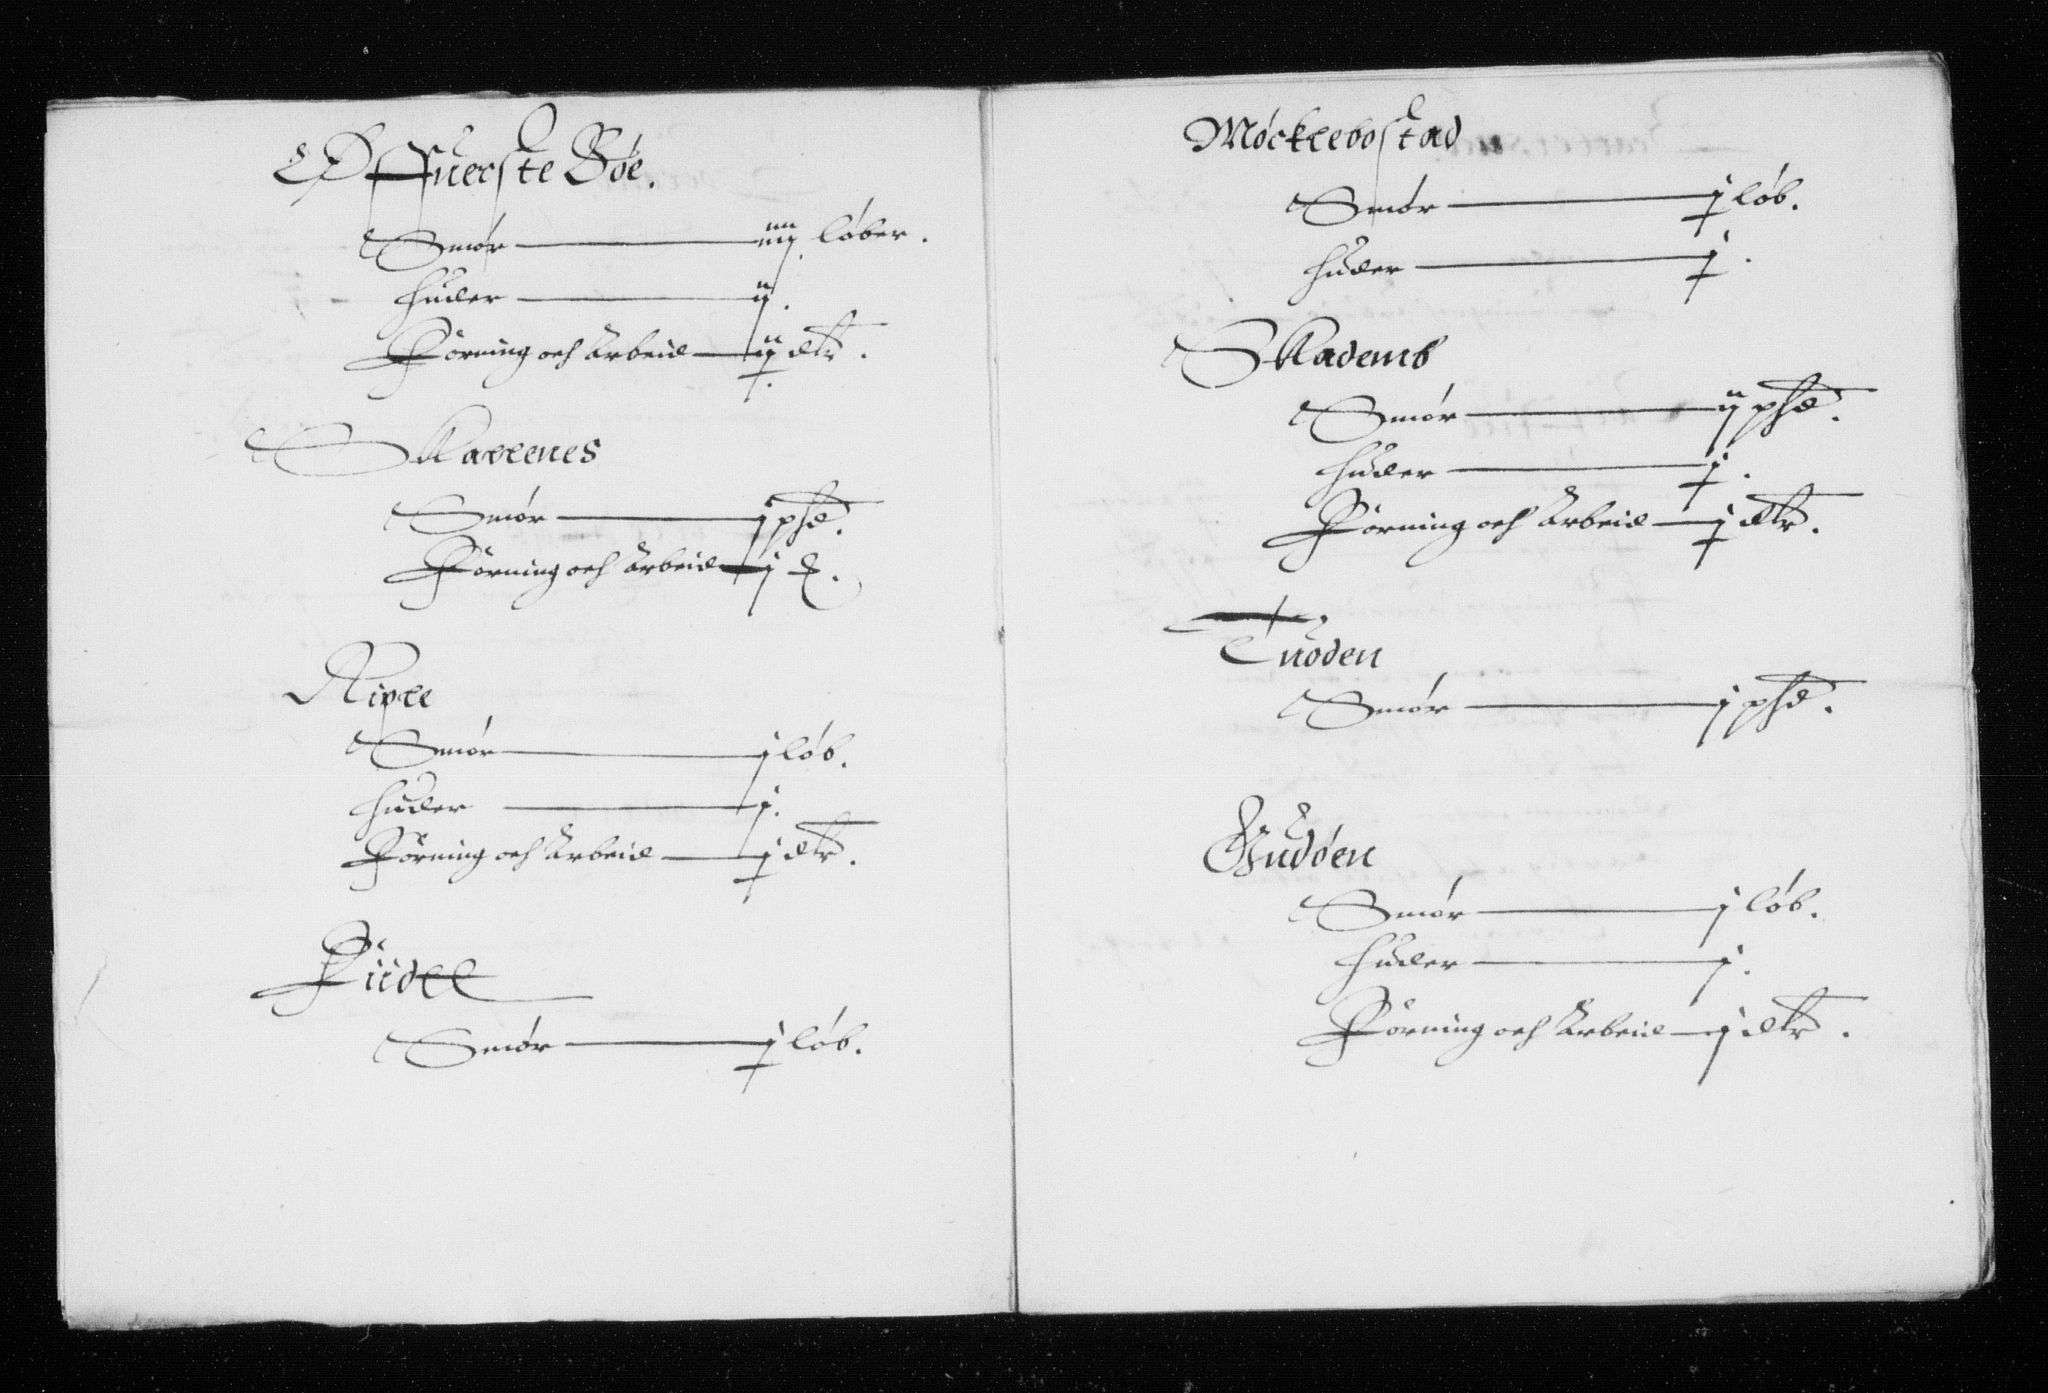 Øffuerste Bøe.
Smør — iiij løber.
Huder — ij.
Förning och Arbeid — ij dlr.
Skallenes
Smør — j phd.
Förning och Arbeid — j
Riple
Smør — j løb.
Huder — j.
Förning och Arbeid — j dlr.
Smør — j løb.
Möcklebostad
Smør — j løb.
Huder — j.
Skadems
Smør — ij phd.
Huder — j.
Förning och Arbeid — j dlr.
Tuoden
Smør — j phd.
Gudøen
Smør — j løb.
Huder — j.
Förning och Arbeid — j dlr.